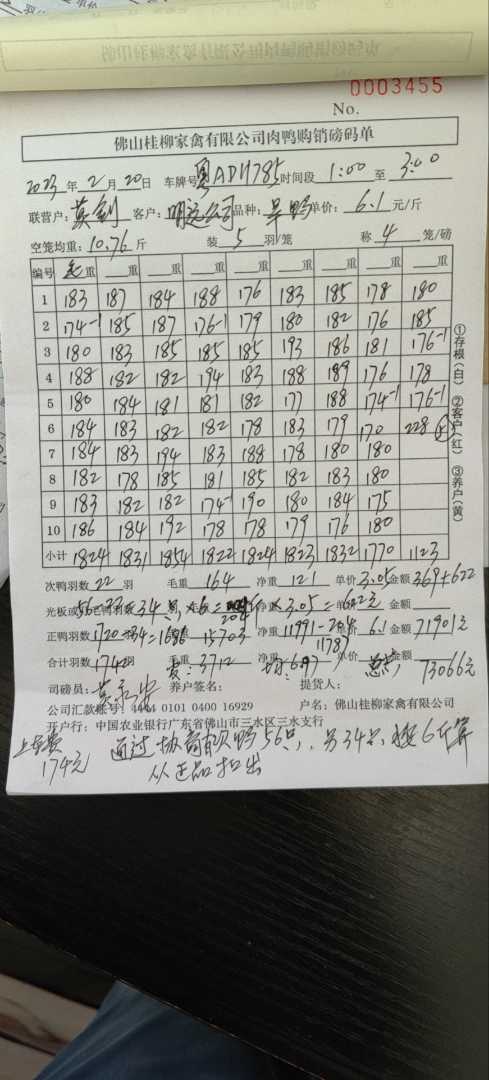 0003455
No.
佛山桂柳家禽有限公司肉鸭购销磅码单
2023年2月20日 车牌号 粤ADH785 时间段 1:00 至 3:00
联营户: 客户: 明远公司 品种: 旱鸭 单价: 6.1 元/斤
空笼均重: 10.76 斤 装 5 羽/笼 称 4 笼/磅
编号 毛重 重 重 重 重 重 重 重 重
1 183 187 184 188 176 183 185 178 180
2 174-1 185 187 176-1 179 180 182 176 185
3 180 183 185 185 185 193 186 181 176-1
4 188 182 182 194 183 188 189 176 178
5 180 184 181 181 182 177 188 174-1 176-1
6 184 183 182 182 178 183 179 170 228
7 184 183 194 183 188 178 180 180
8 182 178 185 181 185 182 183 180
9 183 182 182 174-1 190 180 184 175
10 186 184 192 178 78 179 176 180
小计 1824 1831 1854 1822 1824 1823 1832 1770 1123
①存根(白) ②客户(红) ③养户(黄)
次鸭羽数 22 羽 毛重 164 净重 121 单价 3.05 金额 369+622
光板或 56-22 34只 ×6= 204 ×3.05=622元 金额
正鸭羽数 1720-34=1686 15703 净重 11991-204 6.1 金额 71901元
11787
合计羽数 1742 羽 毛重 3712 净重 均:6.97 单价 金额 73066元
司磅员: 养户签名: 提货人:
公司汇款帐号: 4444 0101 0400 16929 户名: 佛山桂柳家禽有限公司
开户行: 中国农业银行广东省佛山市三水区三水支行
上车费 通过协商 次鸭56只, 另34只, 按6斤算
174元 从正品扣出